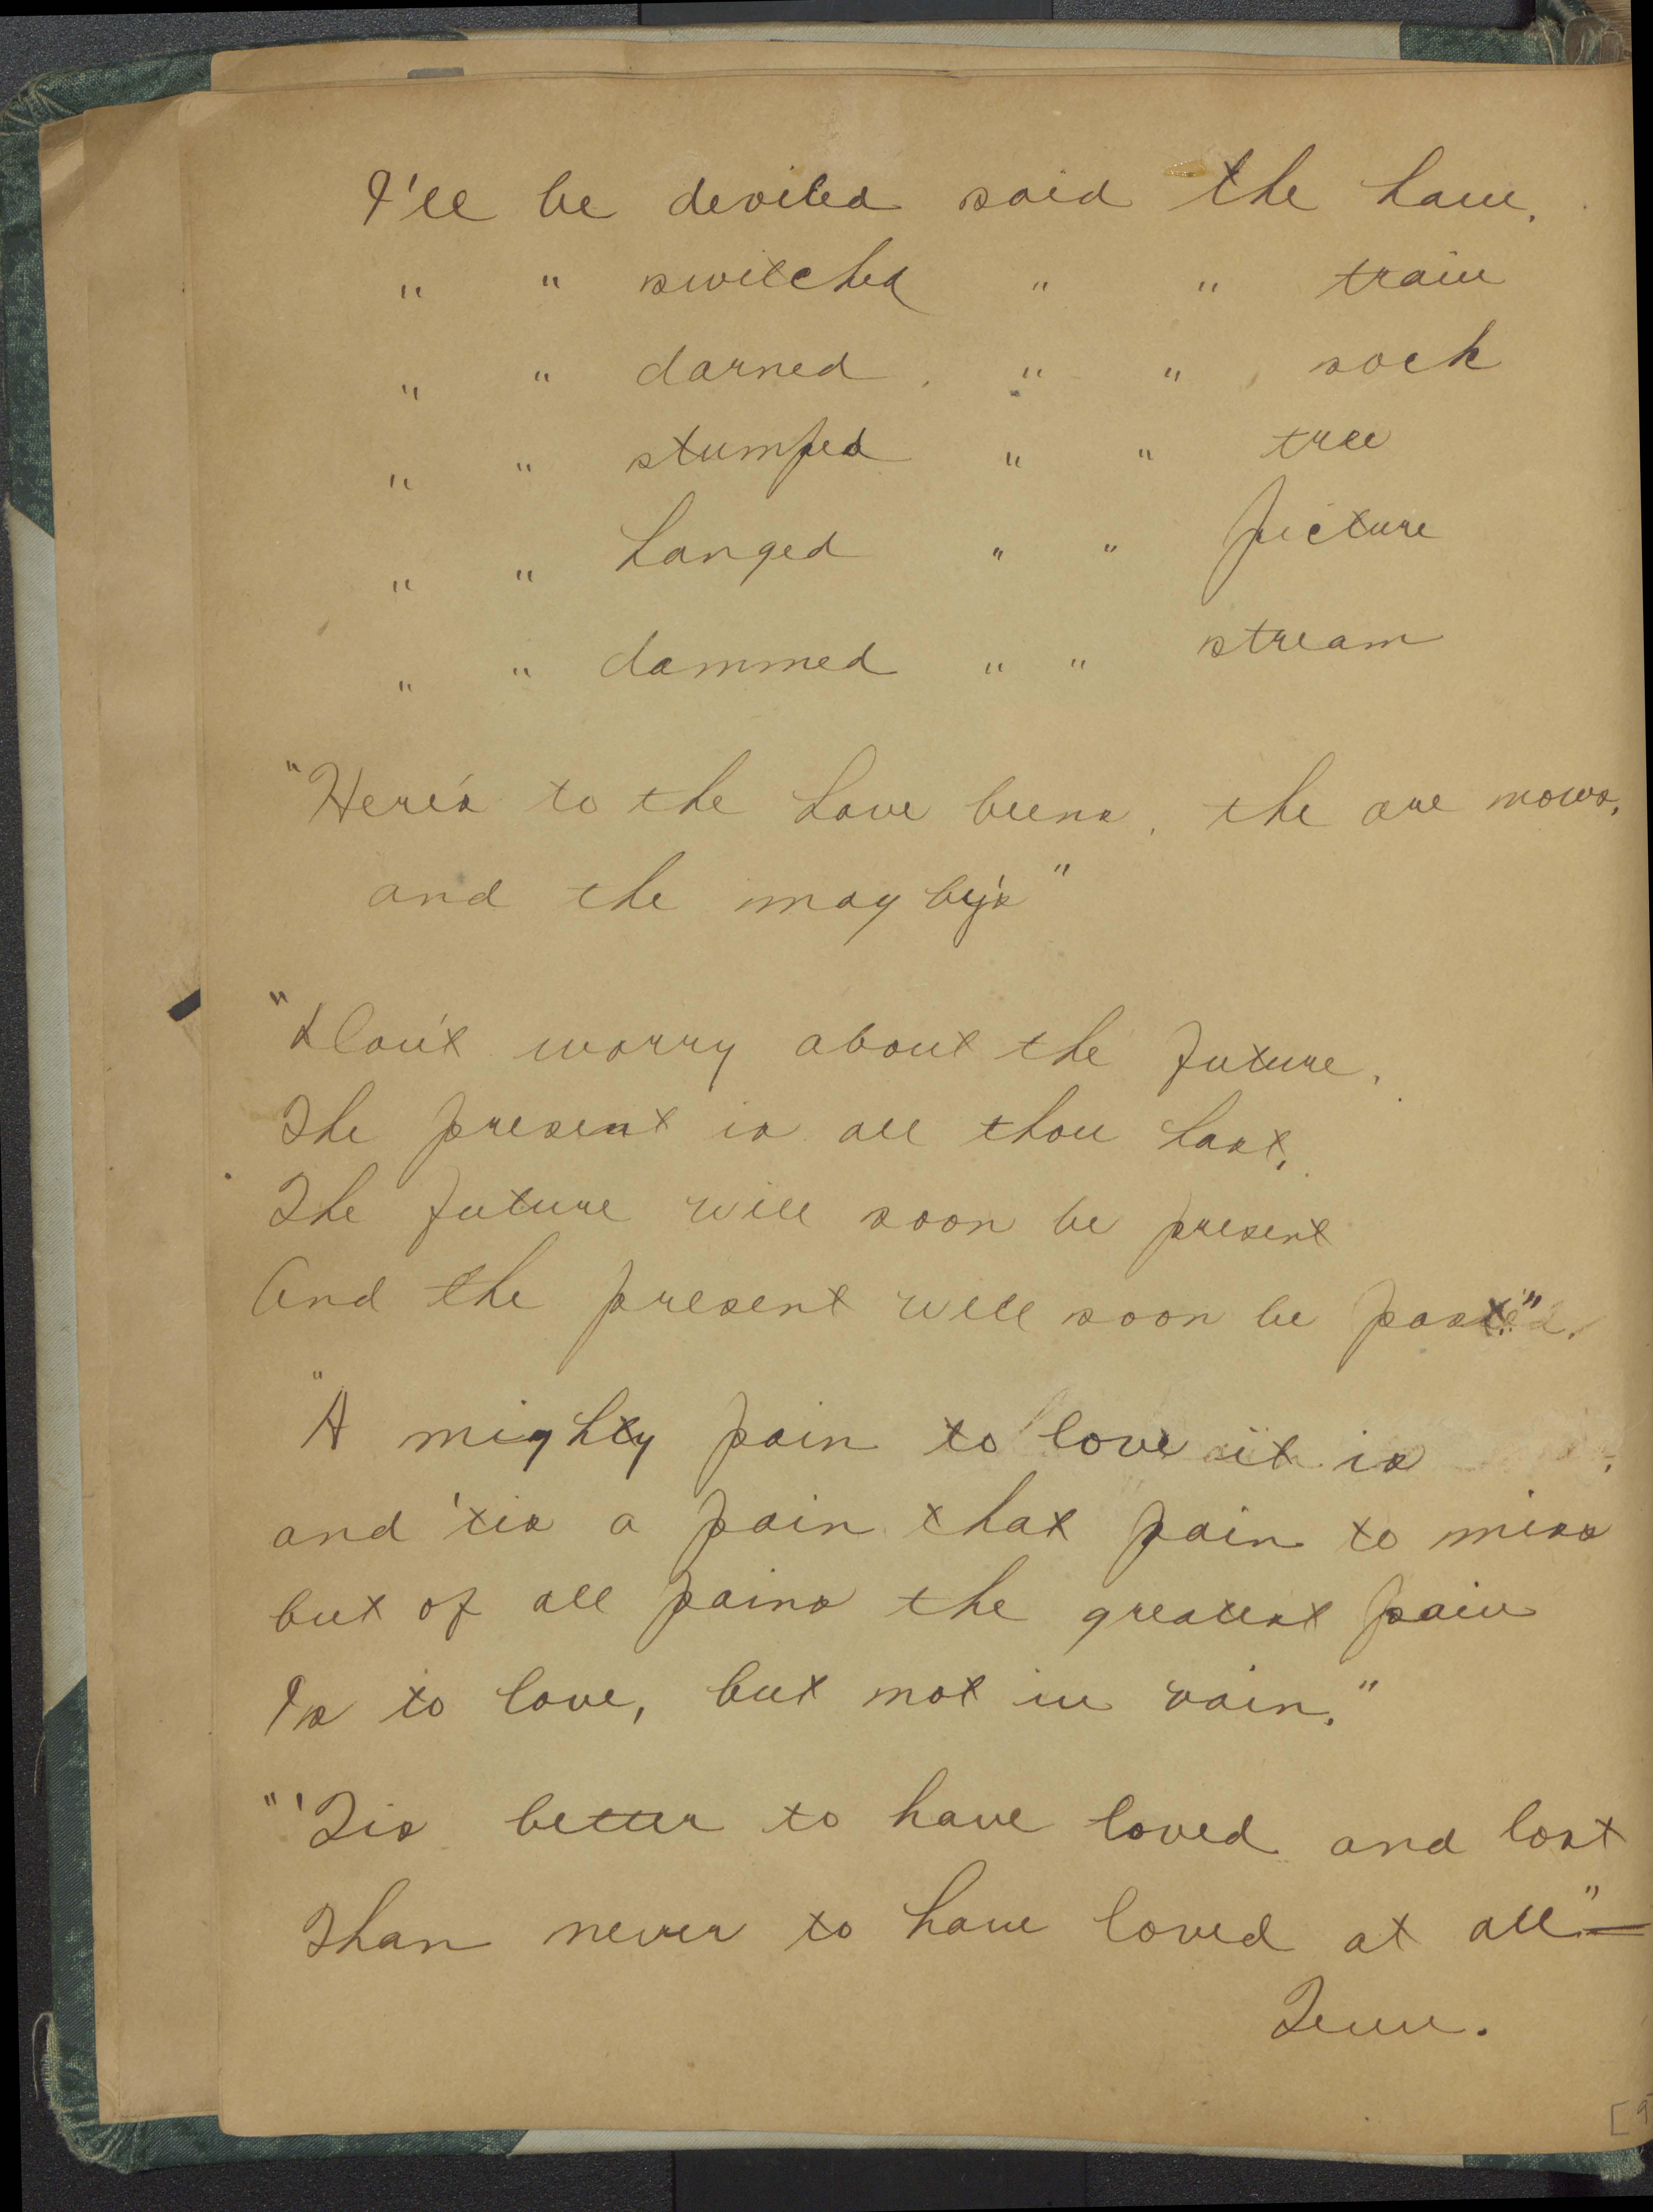 I'll be deviled said the ham.
" " switched " " train
" " darned " " sock
" " stumped " " tree
" " hanged " " picture
" " dammed " " stream
"Here's to the have beens, the are nows,
and the may be's"
"Don't worry about the future,
The present is all thou hast,
The future will soon be present
And the present will soon be past."
"A mighty pain to love it is
and 'tis a pain that pain to miss
but of all pains the greatest pain
Is to love, but not in vain."
"'Tis better to have loved and lost
Than never to have loved at all"—
Tenn.
[9